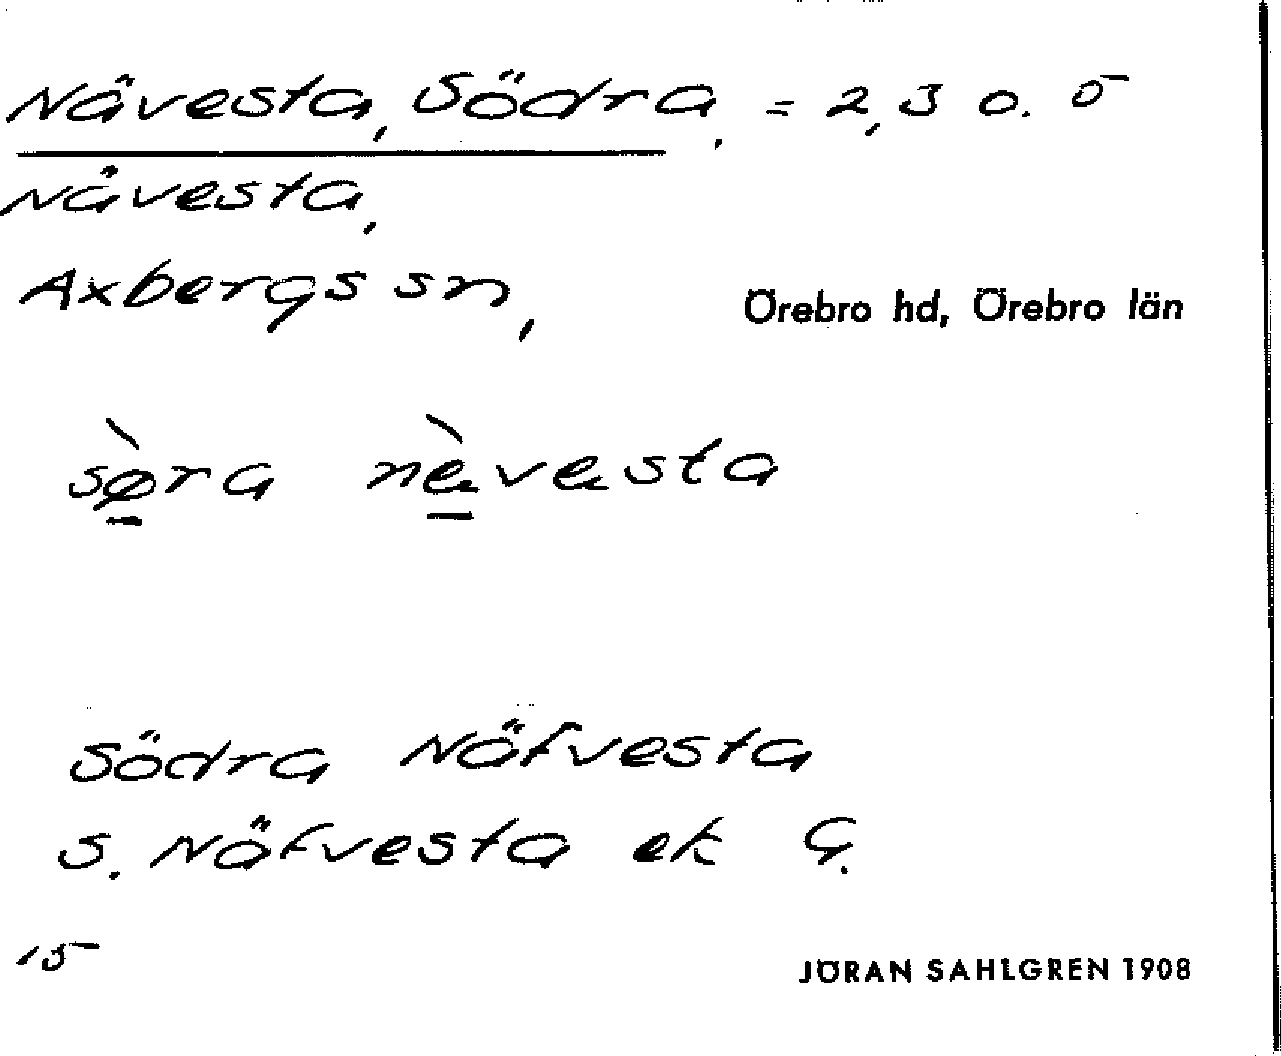 Nåvesta, Södra, = 2,3 o. 5
Nåvesta,
Axbergs sn,
Örebro hd, Örebro län
sø̀ra nævæsta
Södra Näfvesta
S. Näfvesta ek G.
15
JÖRAN SAHLGREN 1908